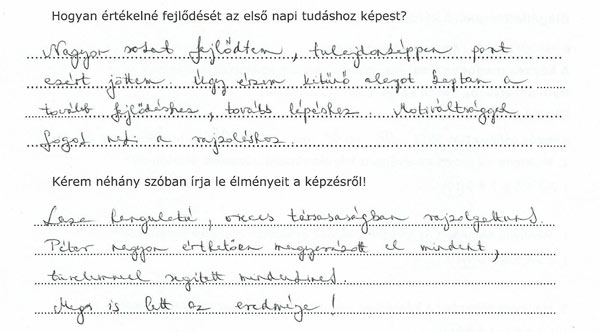 Hogyan értékelné fejlődését az első napi tudáshoz képest?
Nagyon sokat fejlődtem, tulajdonképpen pont
ezért jöttem. Úgy érzem kitűnő alapot kaptam a
tovább fejlődéshez, tovább lépéshez. Motiváltsággal
fogok neki a rajzoláshoz.
Kérem néhány szóban írja le élményeit a képzésről!
Laza hangulatú, társaságban rajzolgattunk.
Péter nagyon érthetően magyarázott el mindent,
türelemmel segített mindenkinek.
Meg is lett az eredménye!